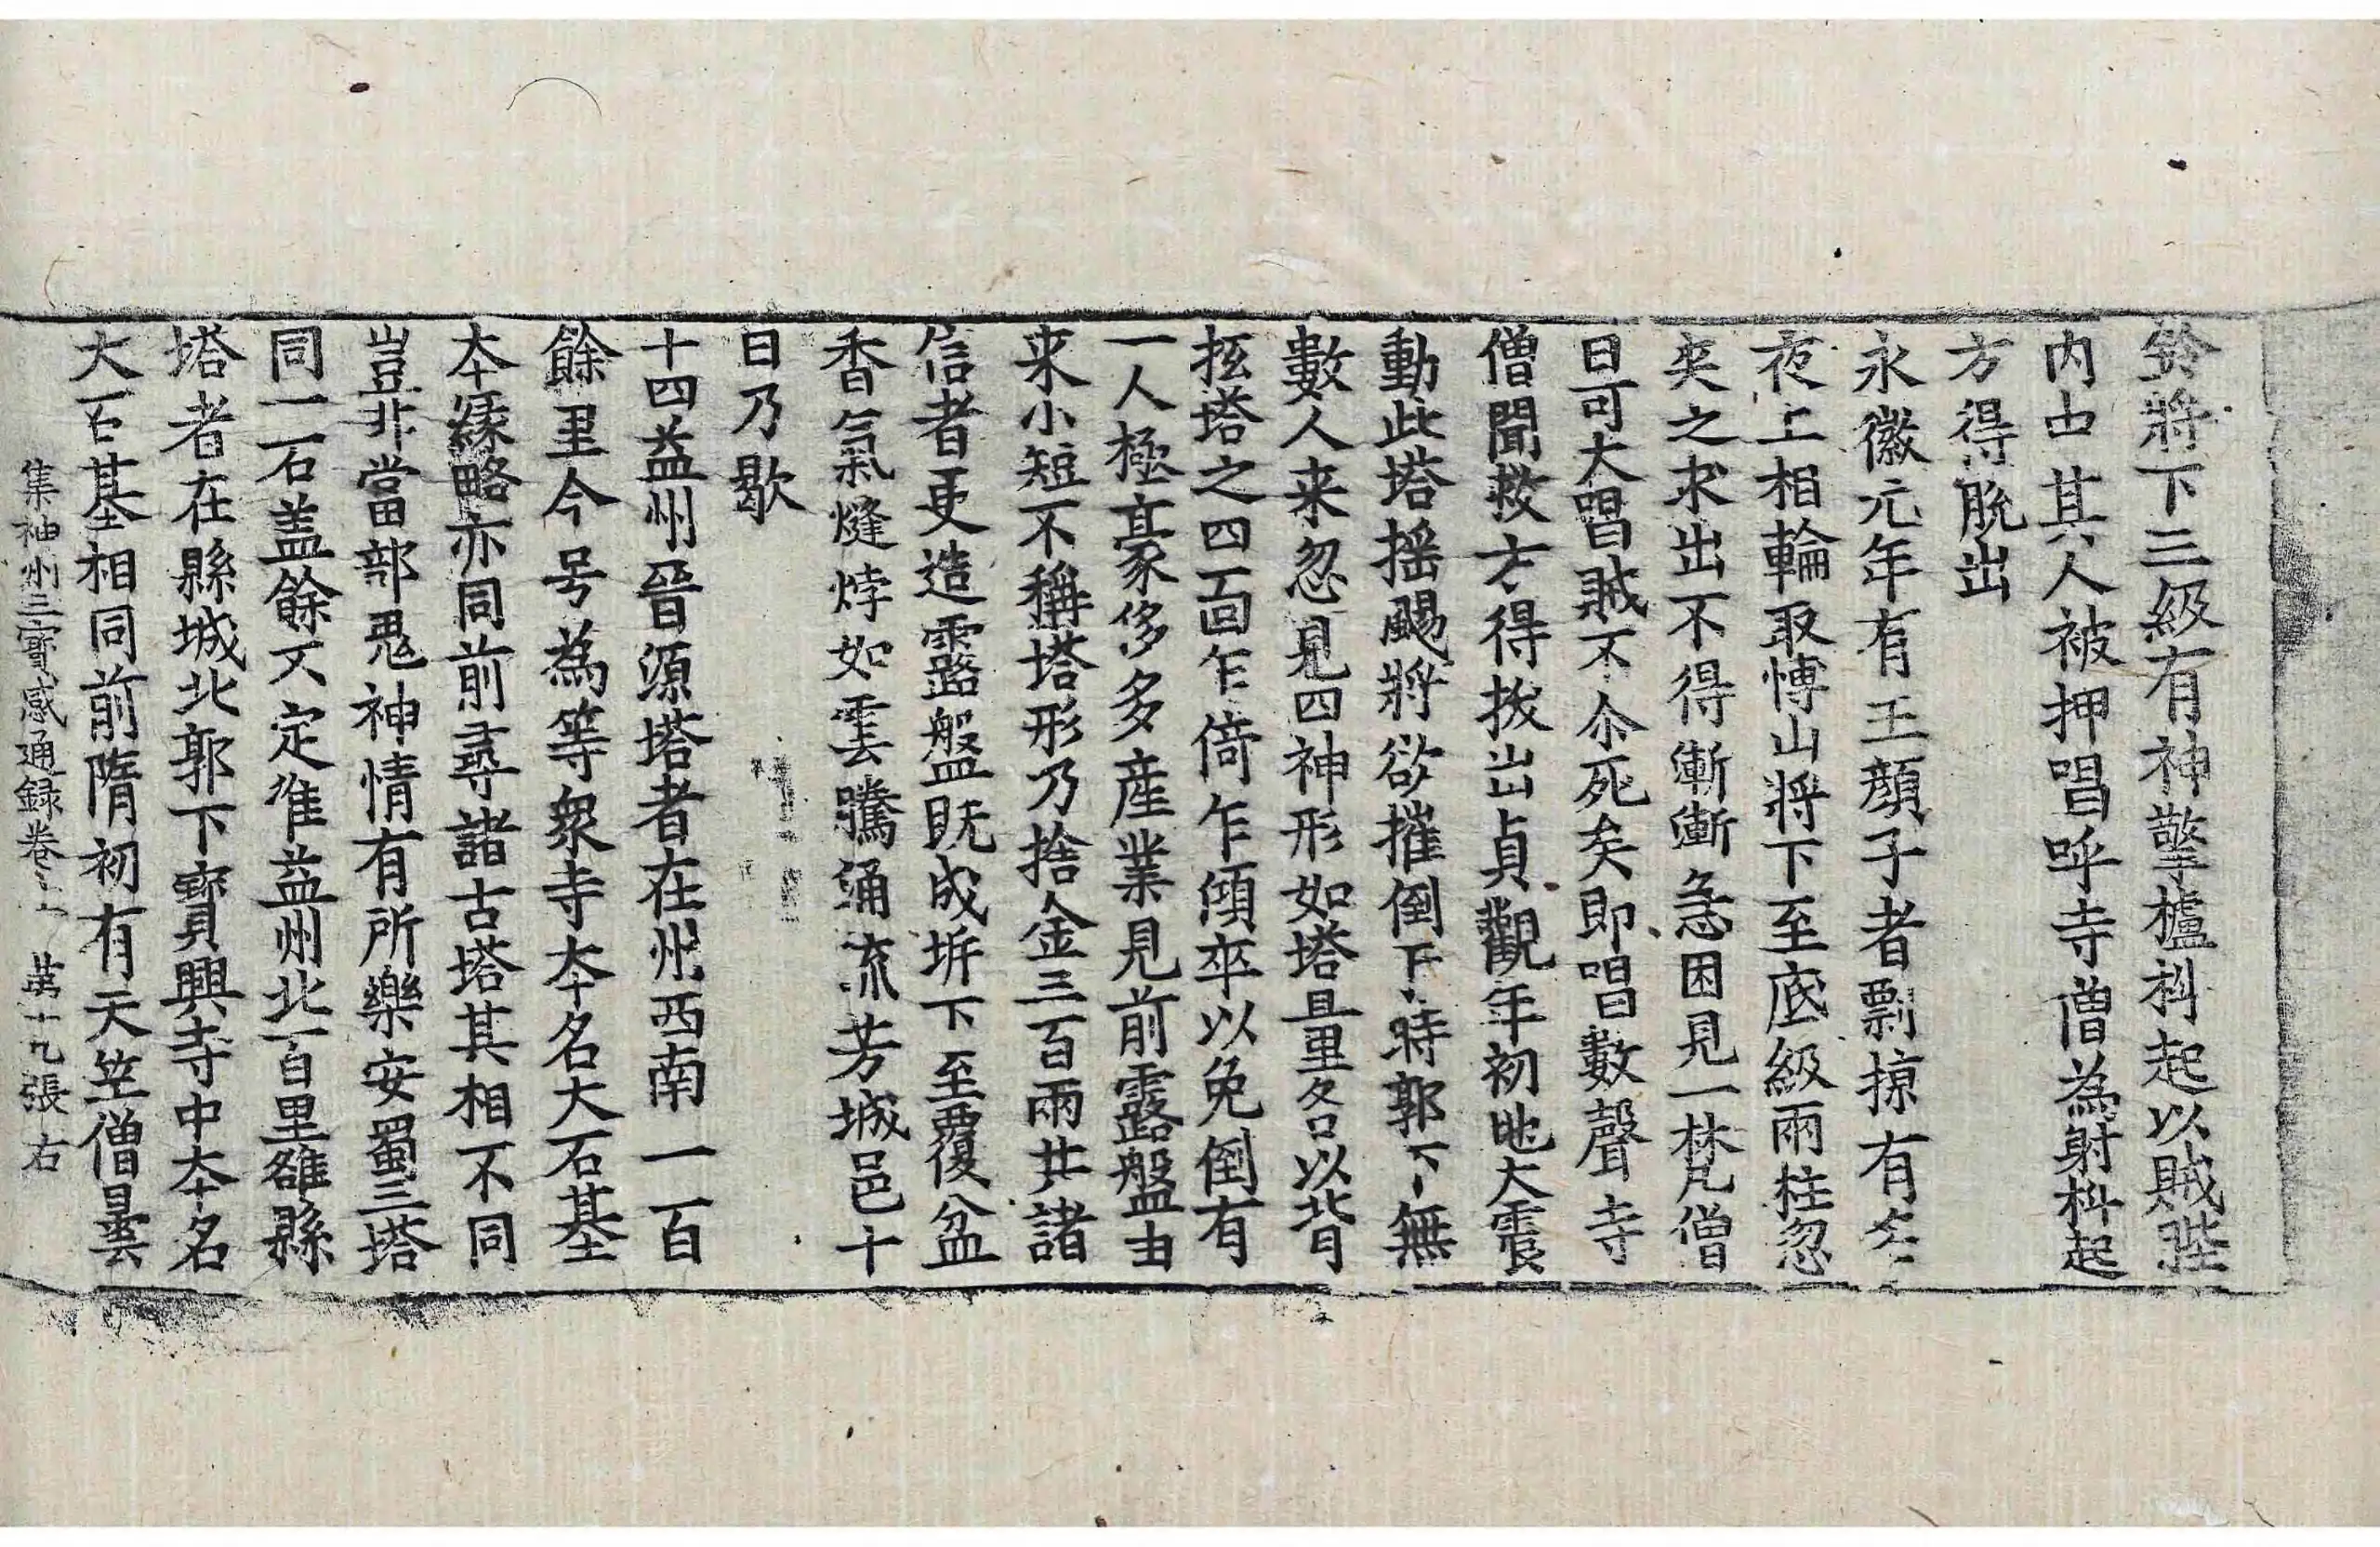 鈴將下三級有神擎櫨科起以賊䏶
内中其人被押唱呼寺僧為射枓起
方得脫出
永徽元年有王顔子者剽掠有
夜上相輪取博山將下至底級兩柱忽
夾之求出不得漸漸急困見一梵僧
曰可大唱賊不尒死矣即唱數聲寺
僧聞救方得拔出貞觀年初地大震
動此塔揺颺將欲摧倒下時郭下無
數人来忽見四神形如塔量各以背
抂塔之四面乍倚乍傾卒以免倒有
一人極豪侈多產業見前露盤由
来小短不稱塔形乃捨金三百兩共諸
信者更造露盤既成坼下至覆盆
香氣㷭㶿如雲騰涌流芳城邑十
日乃歇
十四益州晉源塔者在州西南一百
餘里今号為等衆寺夲名大石基
夲縁略亦同前尋諸古塔其相不同
豈非當部鬼神情有所樂安蜀三塔
同一石盖餘不定准益州北百里雒縣
塔者在縣城北郭下寳興寺中夲名
大石基相同前隋初有天笁僧曇
集神州三寳感通録卷上 苐十九張 右